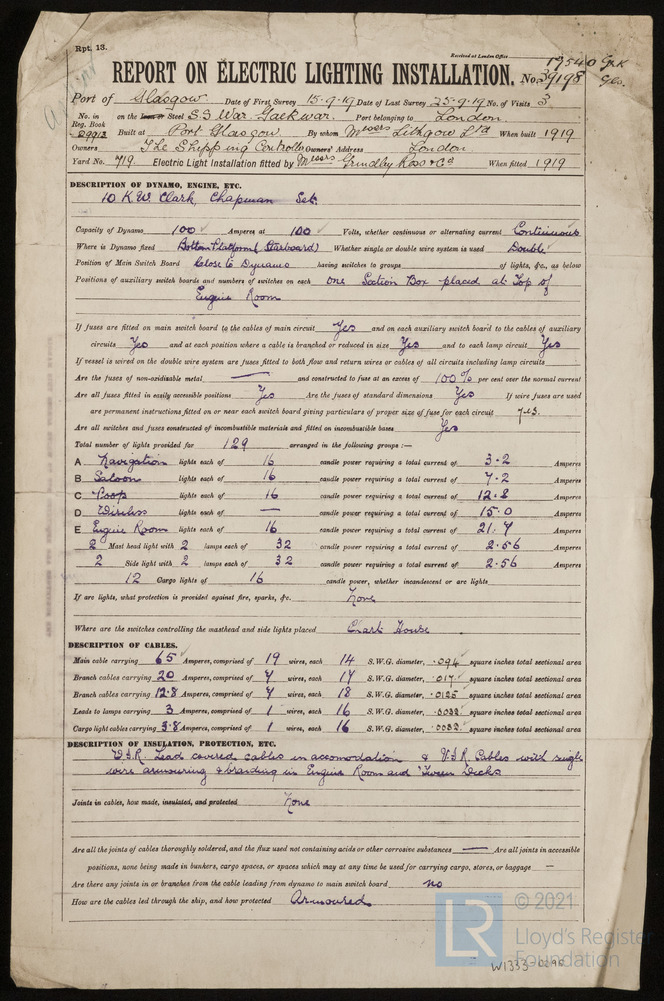 Rpt. 13.
Received at London Office
17540 Grk
REPORT ON ELECTRIC LIGHTING INSTALLATION. No. 39198 Gls.
Port of Glasgow Date of First Survey 15-9-19 Date of Last Survey 25-9-19 No. of Visits 3
No. in Reg. Book 29913 on the Iron or Steel S.S War Gaekwar. Port belonging to London
Built at Port Glasgow By whom Messrs Lithgow Ltd When built 1919
Owners The Shipping Controller Owners' Address London
Yard No. 719. Electric Light Installation fitted by Messrs Grindley Ross & Co When fitted 1919
DESCRIPTION OF DYNAMO, ENGINE, ETC.
10 K.W. Clark Chapman Set.
Capacity of Dynamo 100 Amperes at 100 Volts, whether continuous or alternating current Continuous
Where is Dynamo fixed Bottom Platform (Starboard) Whether single or double wire system is used Double
Position of Main Switch Board Close to Dynamo having switches to groups of lights, &c., as below
Positions of auxiliary switch boards and numbers of switches on each One Section Box placed at Top of
Engine Room
If fuses are fitted on main switch board to the cables of main circuit Yes and on each auxiliary switch board to the cables of auxiliary
circuits Yes and at each position where a cable is branched or reduced in size Yes and to each lamp circuit Yes
If vessel is wired on the double wire system are fuses fitted to both flow and return wires or cables of all circuits including lamp circuits
Are the fuses of non-oxidisable metal — and constructed to fuse at an excess of 100% per cent over the normal current
Are all fuses fitted in easily accessible positions Yes Are the fuses of standard dimensions Yes If wire fuses are used
are permanent instructions fitted on or near each switch board giving particulars of proper size of fuse for each circuit yes.
Are all switches and fuses constructed of incombustible materials and fitted on incombustible bases Yes
Total number of lights provided for 129 arranged in the following groups :—
A Navigation lights each of 16 candle power requiring a total current of 3.2 Amperes
B Saloon lights each of 16 candle power requiring a total current of 7.2 Amperes
C Poop lights each of 16 candle power requiring a total current of 12.8 Amperes
D Wireless lights each of — candle power requiring a total current of 15.0 Amperes
E Engine Room lights each of 16 candle power requiring a total current of 21.7 Amperes
2 Mast head light with 2 lamps each of 32 candle power requiring a total current of 2.56 Amperes
2 Side light with 2 lamps each of 32 candle power requiring a total current of 2.56 Amperes
12 Cargo lights of 16 candle power, whether incandescent or arc lights
If arc lights, what protection is provided against fire, sparks, &c. None
Where are the switches controlling the masthead and side lights placed Chart House
DESCRIPTION OF CABLES.
Main cable carrying 65 Amperes, comprised of 19 wires, each 14 S.W.G. diameter, .094 square inches total sectional area
Branch cables carrying 20 Amperes, comprised of 7 wires, each 17 S.W.G. diameter, .017 square inches total sectional area
Branch cables carrying 12.8 Amperes, comprised of 7 wires, each 18 S.W.G. diameter, .0125 square inches total sectional area
Leads to lamps carrying 3 Amperes, comprised of 1 wires, each 16 S.W.G. diameter, .0032 square inches total sectional area
Cargo light cables carrying 3.8 Amperes, comprised of 1 wires, each 16 S.W.G. diameter, .0032 square inches total sectional area
DESCRIPTION OF INSULATION, PROTECTION, ETC.
V.I.R. Lead covered cables in accomodation & V.I.R. Cables with single
wire armouring & braiding in Engine Room and 'Tween Decks
Joints in cables, how made, insulated, and protected None
Are all the joints of cables thoroughly soldered, and the flux used not containing acids or other corrosive substances — Are all joints in accessible
positions, none being made in bunkers, cargo spaces, or spaces which may at any time be used for carrying cargo, stores, or baggage —
Are there any joints in or branches from the cable leading from dynamo to main switch board no
How are the cables led through the ship, and how protected Armoured
LR © 2021
Lloyd's Register
Foundation
W1333-0296